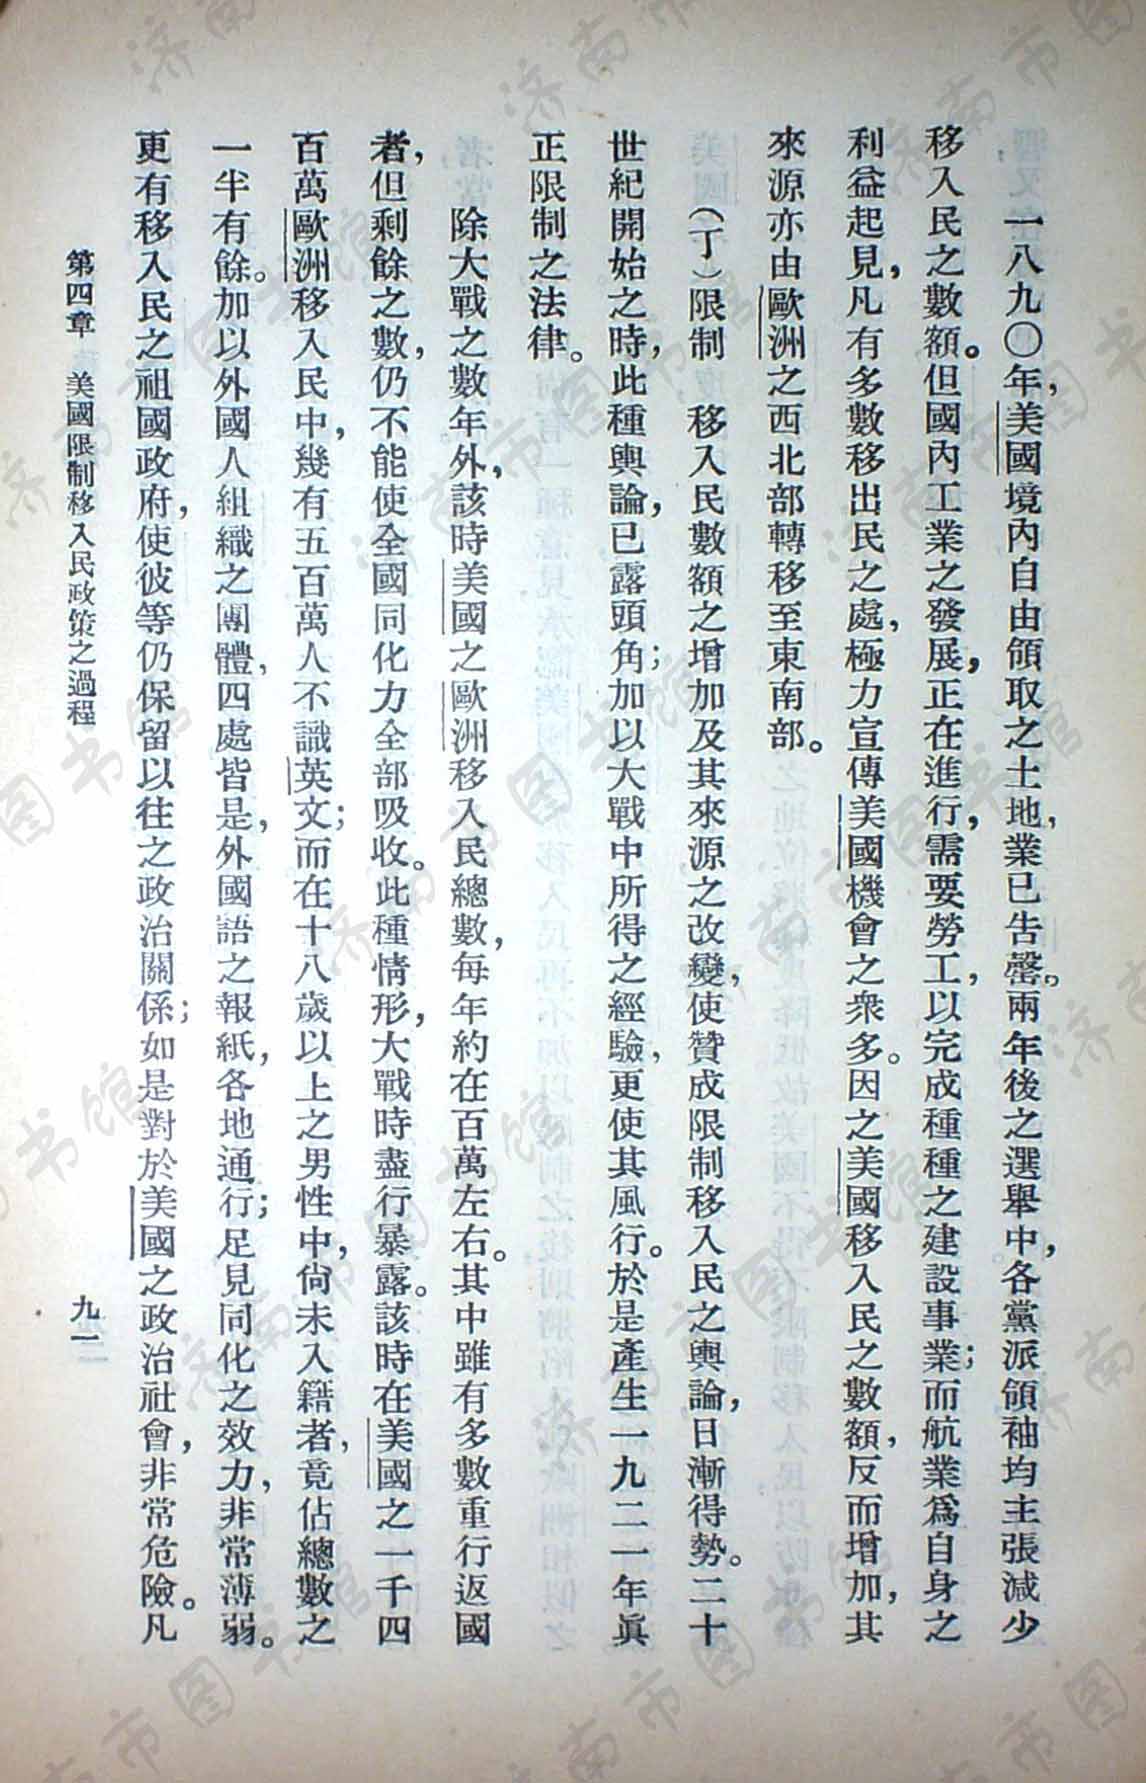 一八九〇年，美國境內自由領取之土地，業已告罄。兩年後之選舉中，各黨派領袖均主張減少
移入民之數額。但國內工業之發展，正在進行，需要勞工，以完成種種之建設事業；而航業爲自身之
利益起見，凡有多數移出民之處，極力宣傳美國機會之衆多。因之美國移入民之數額，反而增加，其
來源亦由歐洲之西北部轉移至東南部。
（丁）限制　移入民數額之增加及其來源之改變，使贊成限制移入民之輿論，日漸得勢。二十
世紀開始之時，此種輿論，已露頭角；加以大戰中所得之經驗，更使其風行。於是產生一九二一年眞
正限制之法律。
除大戰之數年外，該時美國之歐洲移入民總數，每年約在百萬左右。其中雖有多數重行返國
者，但剩餘之數，仍不能使全國同化力全部吸收。此種情形，大戰時盡行暴露。該時在美國之一千四
百萬歐洲移入民中，幾有五百萬人不識英文；而在十八歲以上之男性中，尙未入籍者，竟佔總數之
一半有餘。加以外國人組織之團體，四處皆是，外國語之報紙，各地通行；足見同化之效力，非常薄弱。
更有移入民之祖國政府，使彼等仍保留以往之政治關係；如是對於美國之政治社會，非常危險。凡
第四章　美國限制移入民政策之過程
九一
济南市图书馆